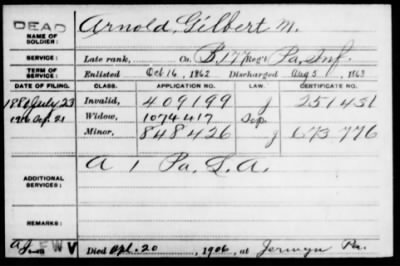 DEAD
NAME OF SOLDIER: Arnold, Gilbert M.
SERVICE: Late rank, Co. B, 177 Reg't Pa. Inf.
TERM OF SERVICE: Enlisted Oct 16, 1862 Discharged Aug 5, 1863
DATE OF FILING. CLASS. APPLICATION NO. LAW. CERTIFICATE NO.
1881 July 23 Invalid, 409199 J 251431
1906 Sep. 21 Widow, 1074417 Dep.
Minor, 848426 J 673776
ADDITIONAL SERVICES: A 1 Pa. L. A.
REMARKS:
FWV Died Apl. 20, 1906 at Jermyn Pa.